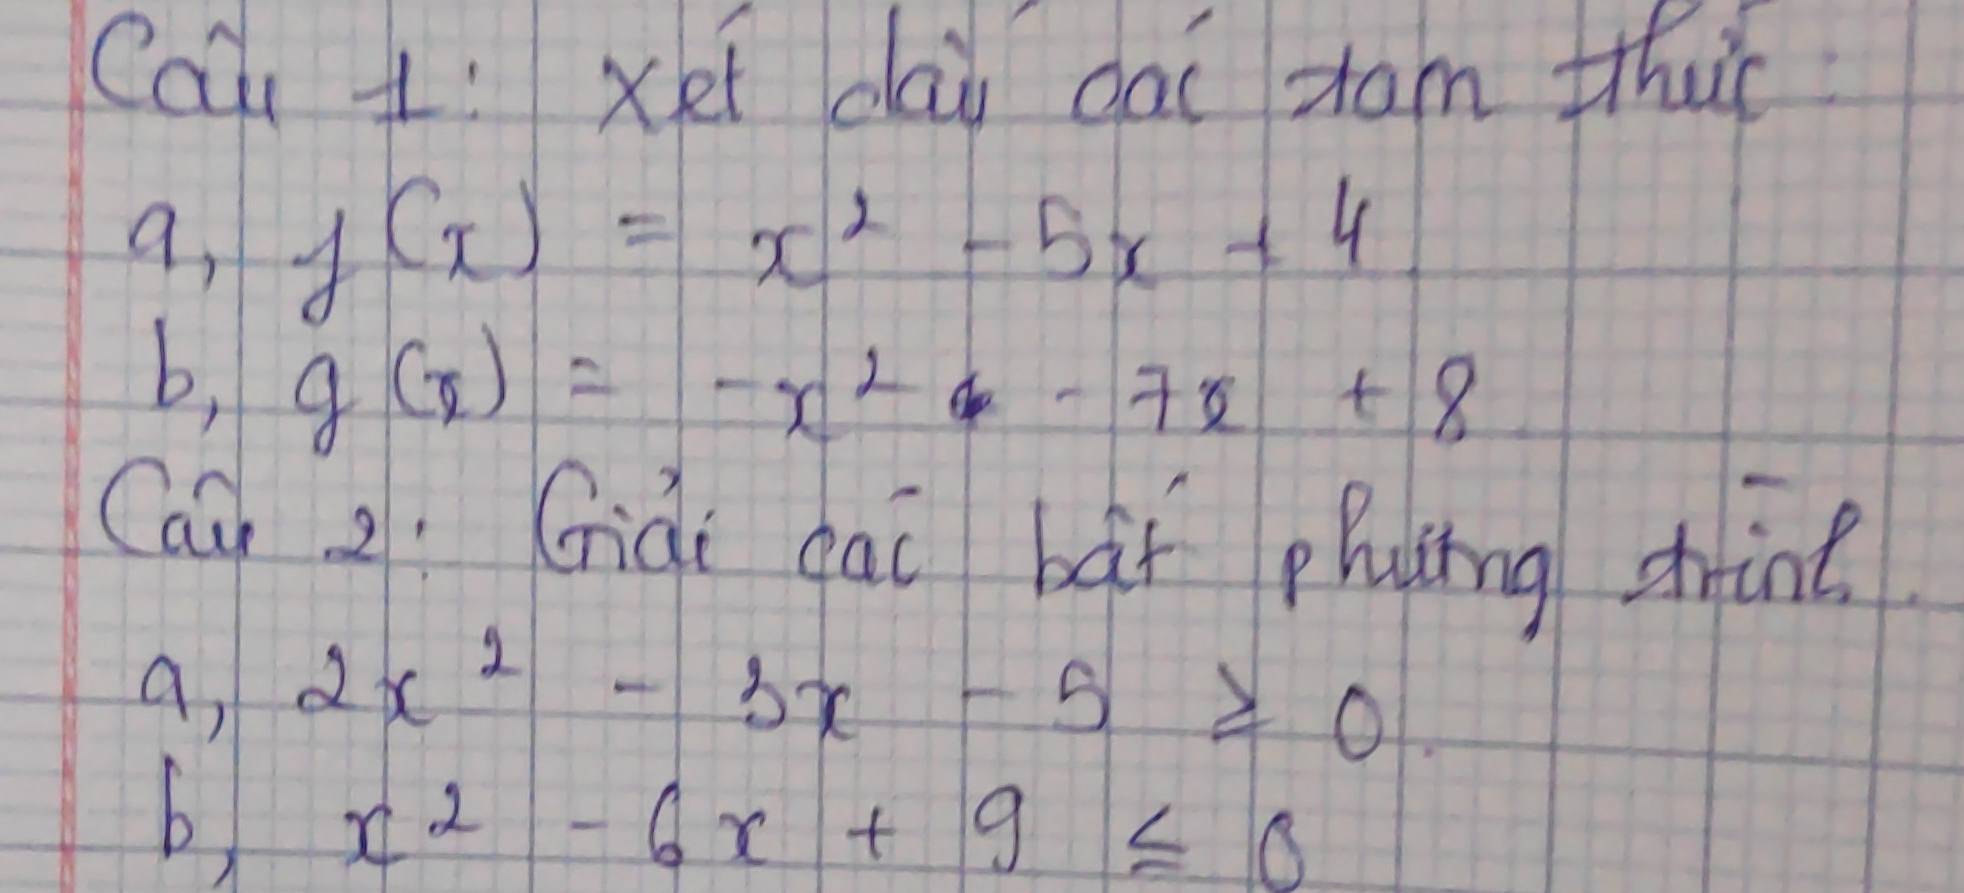 Câu 1: Xét dấu các tam thức:
a, f(x) = x² - 5x + 4
b, g(x) = -x² - 7x + 8
Câu 2: Giải các bất phương trình.
a, 2x² - 3x - 5 ≥ 0.
b, x² - 6x + 9 ≤ 0